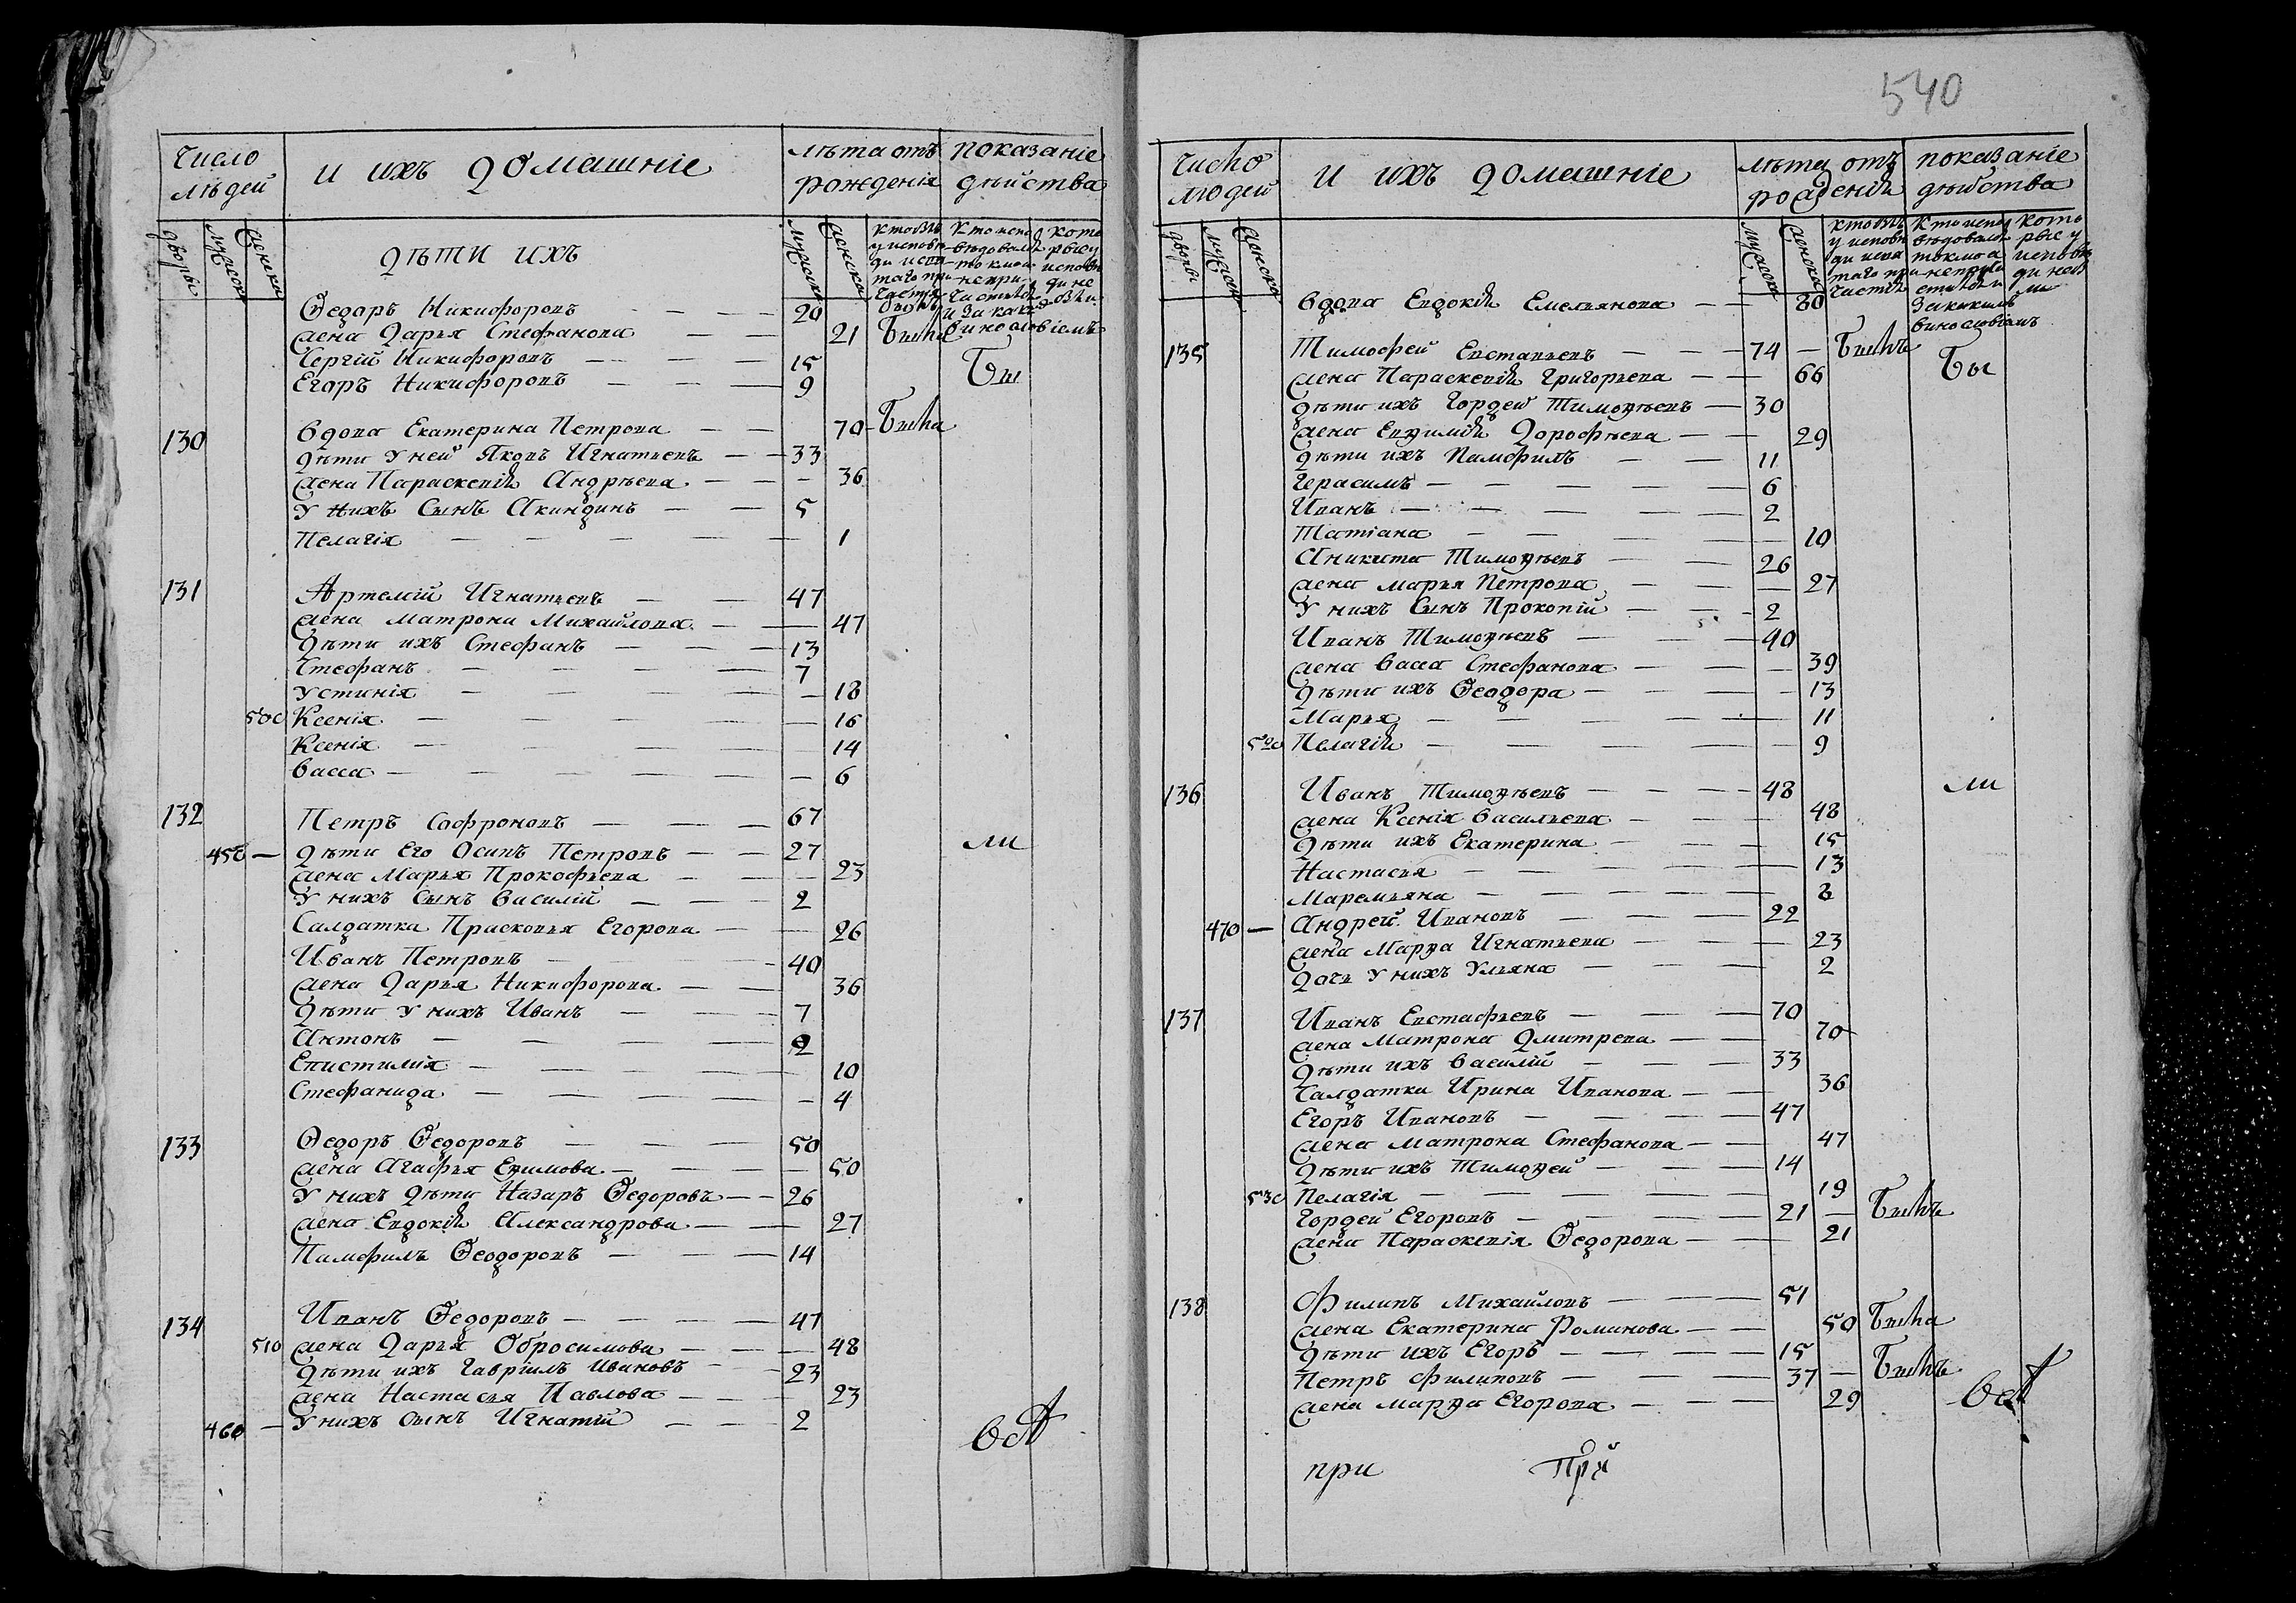 540
Число людей | и ихъ домашніе | лѣта отъ рожденія | показаніе дѣйства
дворы | мужеск | женска | дѣти ихъ | мужеска | женска | кто былъ у исповѣди и святаго причастія | кто исповѣдовался токмо а не причастился и за какимъ винословіемъ | которые у исповѣди не были
Ѳедоръ Никифоровъ — 20
жена Дарья Стефанова — 21 Была
Сергій Никифоровъ — 15
Егоръ Никифоровъ — 9
Бы
130 вдова Екатерина Петрова — 70 Была
дѣти у ней Яковъ Игнатьевъ — 33
жена Параскевія Андрѣева — 36
У нихъ Сынъ Акиндинъ — 5
Пелагія — 1
131 Артемій Игнатьевъ — 47
жена Матрона Михайлова — 47
дѣти ихъ Стефанъ — 13
Стефанъ — 7
Устинія — 18
500 Ксенія — 16
Ксенія — 14
васса — 6
132 Петръ Сафроновъ — 67
458 — дѣти Его Осипъ Петровъ — 27
ли
жена Марья Прокофьева — 23
У нихъ Сынъ Василій — 2
Салдатка Прасковья Егорова — 26
Иванъ Петровъ — 40
жена Дарья Никифорова — 36
дѣти у нихъ Иванъ — 7
Антонъ — 2
Епистимія — 10
Стефанида — 4
133 Ѳедоръ Ѳедоровъ — 50
жена Агафья Ефимова — 50
У нихъ дѣти Назаръ Ѳедоровъ — 26
жена Евдокія Александрова — 27
Памфилъ Ѳеодоровъ — 14
134 Иванъ Ѳедоровъ — 47
510 жена Дарья Обросимова — 48
дѣти ихъ Гавріилъ Ивановъ — 23
жена Настасья Павлова — 23
460 — У нихъ сынъ Игнатій — 2
всѣ
Число людей | и ихъ домашніе | лѣта отъ рожденія | показаніе дѣйства
дворы | мужеск | женска | мужеска | женска | кто былъ у исповѣди и свята таго причастія | кто исповѣдовался токмо а не причастился и за какимъ винословіемъ | которые у исповѣди не были
вдова Евдокія Емельянова — 80
135 Тимофей Евстаѳьевъ — 74 — Былъ
жена Параскевія Григорьева — 66
Бы
дѣти ихъ Гордей Тимоѳѣевъ — 30
жена Евѳимія Дорофѣева — 29
дѣти ихъ Памфилъ — 11
Герасимъ — 6
Иванъ — 2
Татіана — 10
Аникита Тимоѳѣевъ — 26
жена Марья Петрова — 27
У нихъ Сынъ Прокопій — 2
Иванъ Тимоѳѣевъ — 40
жена Васса Стефанова — 39
дѣти ихъ Ѳеодора — 13
Марья — 11
520 Пелагія — 9
136 Иванъ Тимоѳѣевъ — 48
ли
жена Ксенія Васильева — 48
дѣти ихъ Екатерина — 15
Настасья — 13
Маремьяна — 8
470 — Андрей Ивановъ — 22
жена Марѳа Игнатьева — 23
дочь у нихъ Ульяна — 2
137 Иванъ Евстафьевъ — 70
жена Матрона Дмитрева — 70
дѣти ихъ Василій — 33
Салдатка Ирина Иванова — 36
Егоръ Ивановъ — 47
жена Матрона Стефанова — 47
дѣти ихъ Тимоѳей — 14
530 Пелагія — 19
Гордей Егоровъ — 21 — Былъ
жена Параскевія Ѳедорова — 21
138 Филипъ Михайловъ — 51
жена Екатерина Романова — 50 Была
дѣти ихъ Егоръ — 15
Петръ Филиповъ — 37 — Былъ
жена Марѳа Егорова — 29
всѣ
при